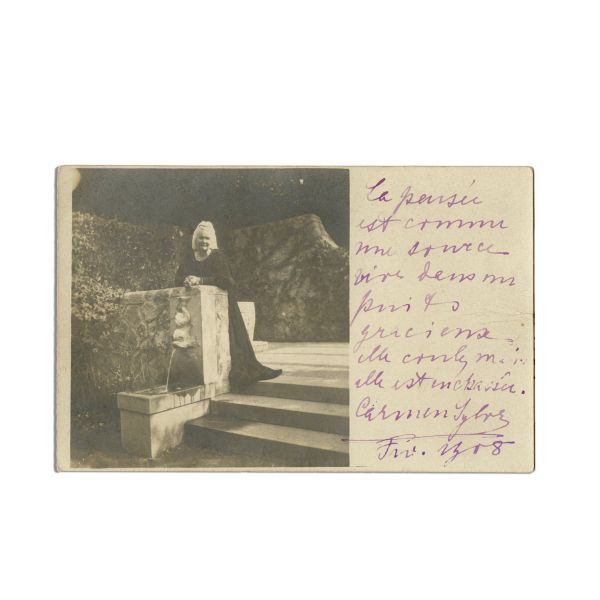 La pensée
est comme
une source
vive dans un
puits
gracieux
elle coule, mais
elle est enchassée.
Carmen Sylva
Fev. 1908